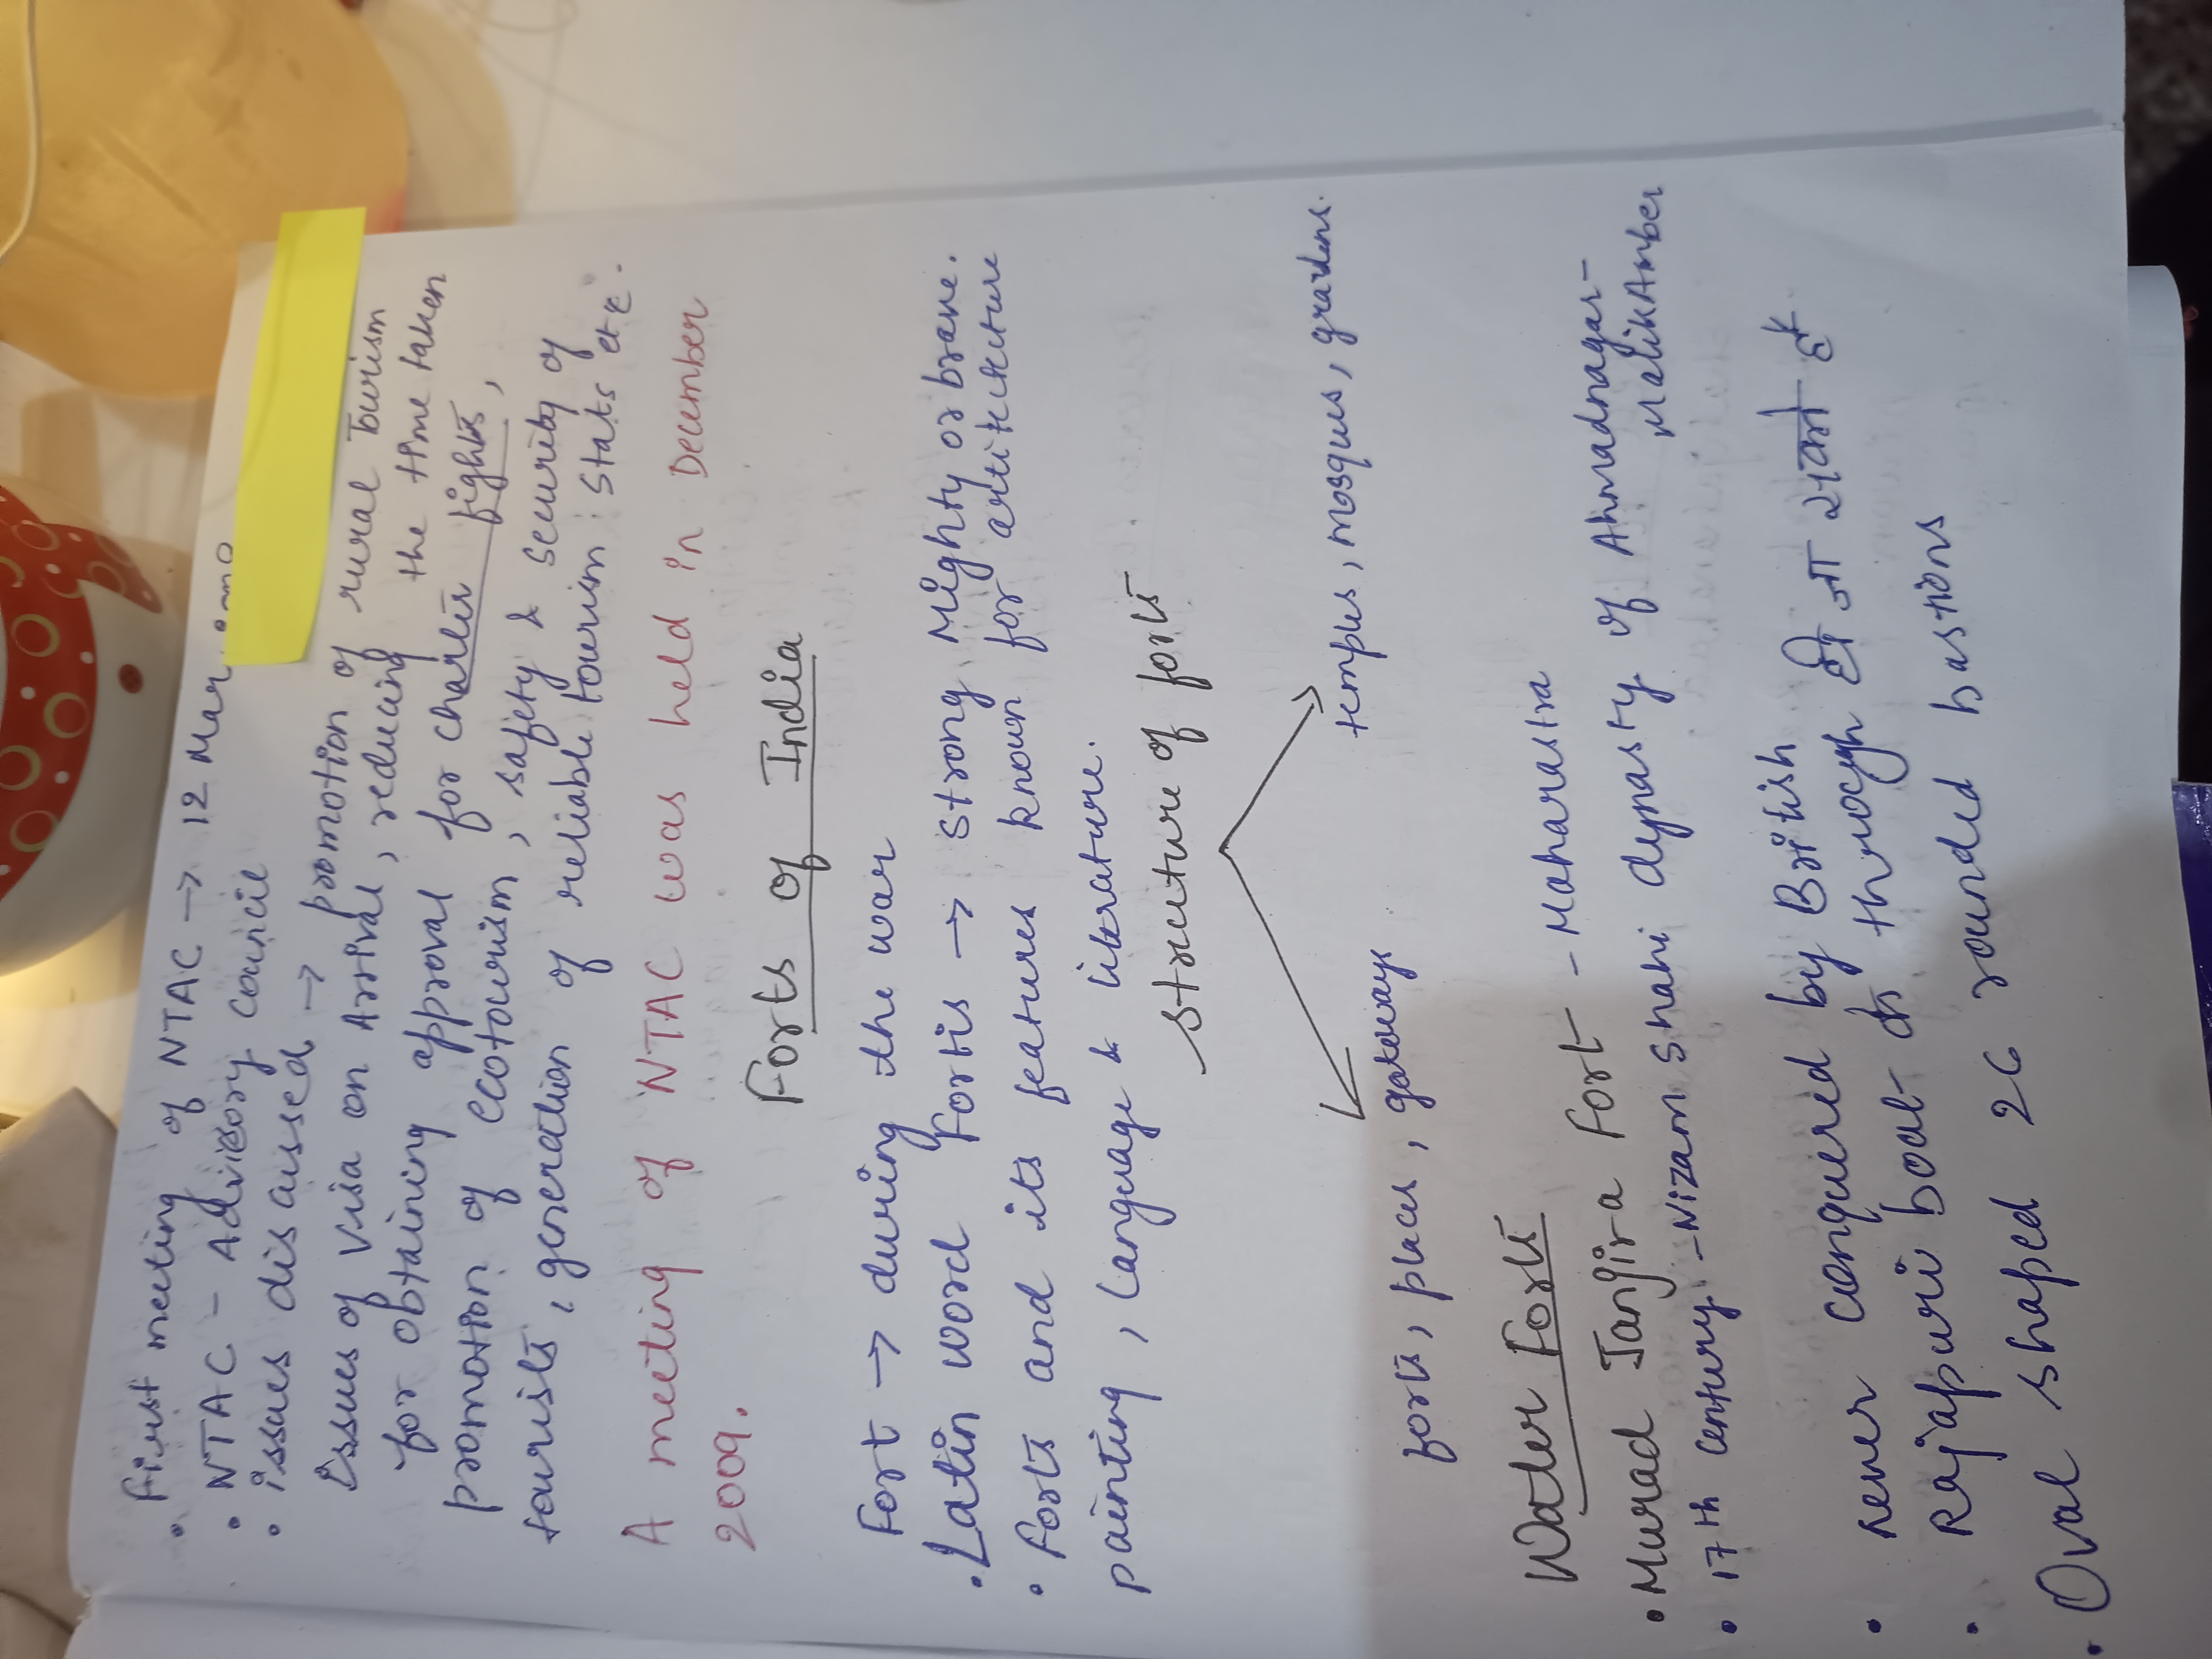 . First meeting of NTAC → 12 Mar.
. NTAC - Advisory Council
. issues discussed → promotion of rural Tourism
issues of Visa on Arrival, reducing the time taken
for obtaining approval for Charter fights,
promotion of ecotourism, safety & security of
tourists, generation of reliable tourism stats etc.
A meeting of NTAC was held in December
2009.
Forts of India
Fort → during the war
. Latin word Fortis → strong, Mighty or brave.
. Forts and its features known for
painting, language & literature.
struture of forts
temples, mosques,
forts, places, gateways
Water Forts
. Murad Janjira Fort - Maharastra
. 17th Century - Nizam Shahi dynasty of Ahmadnagar-
Malik Amber
. never conquered by British
. Rajapuri boat के through ही जा सकते है
. Oval shaped 26 rounded bastions